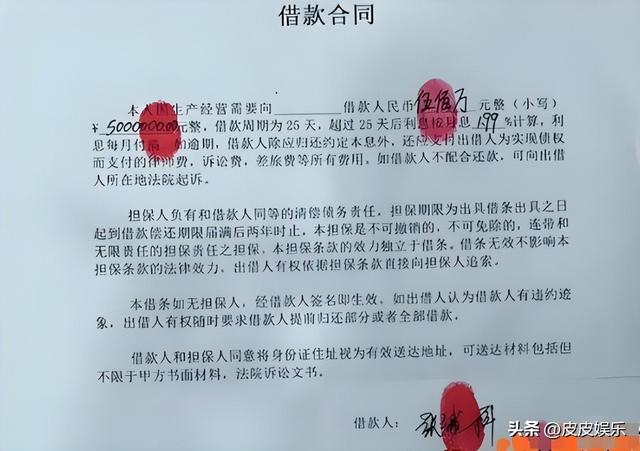 借款合同
本人因生产经营需要向________借款人民币伍佰万元整（小写）
¥ 5000000.00元整，借款周期为25天，超过25天后利息按月息1.99%计算，利
息每月付清 如逾期，借款人除应归还约定本息外，还应支付出借人为实现债权
而支付的律师费，诉讼费，差旅费等所有费用。如借款人不配合还款，可向出借
人所在地法院起诉。
担保人负有和借款人同等的清偿债务责任，担保期限为出具借条出具之日
起到借款偿还期限届满后两年时止。本担保是不可撤销的，不可免除的，连带和
无限责任的担保责任之担保。本担保条款的效力独立于借条。借条无效不影响本
担保条款的法律效力。出借人有权依据担保条款直接向担保人追索。
本借条如无担保人，经借款人签名即生效。如出借人认为借款人有违约迹
象，出借人有权随时要求借款人提前归还部分或者全部借款。
借款人和担保人同意将身份证住址视为有效送达地址，可送达材料包括但
不限于甲方书面材料，法院诉讼文书。
借款人：张继科
头条 @皮皮娱乐